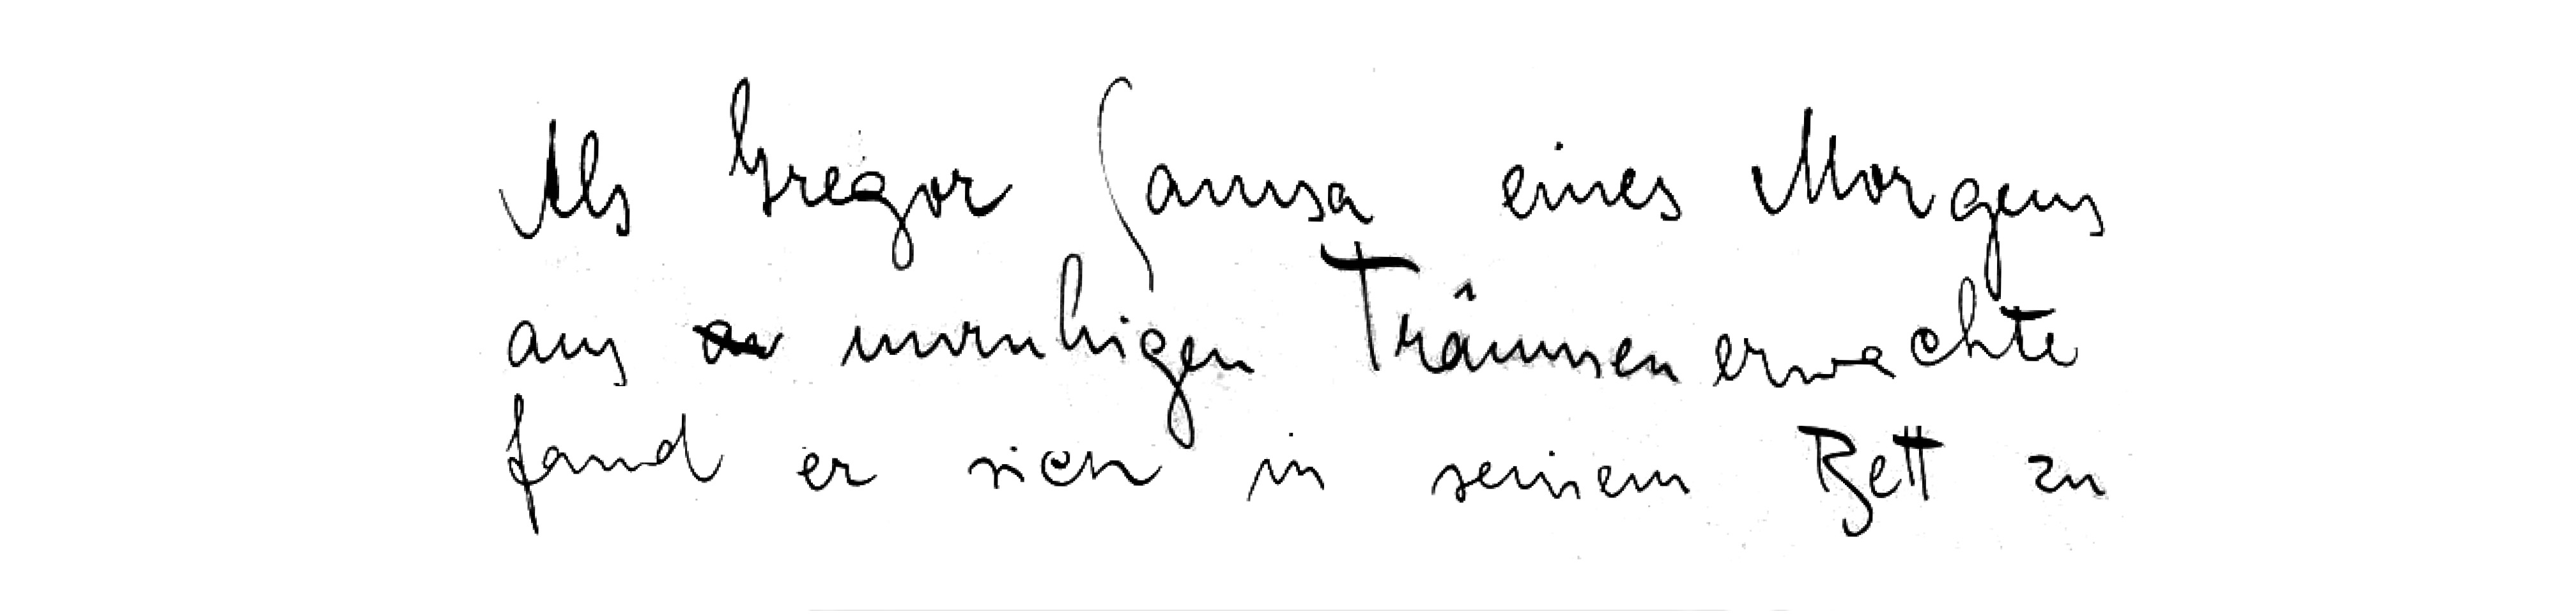 Als Gregor Samsa eines Morgens
aus unruhigen Träumen erwachte
fand er sich in seinem Bett zu